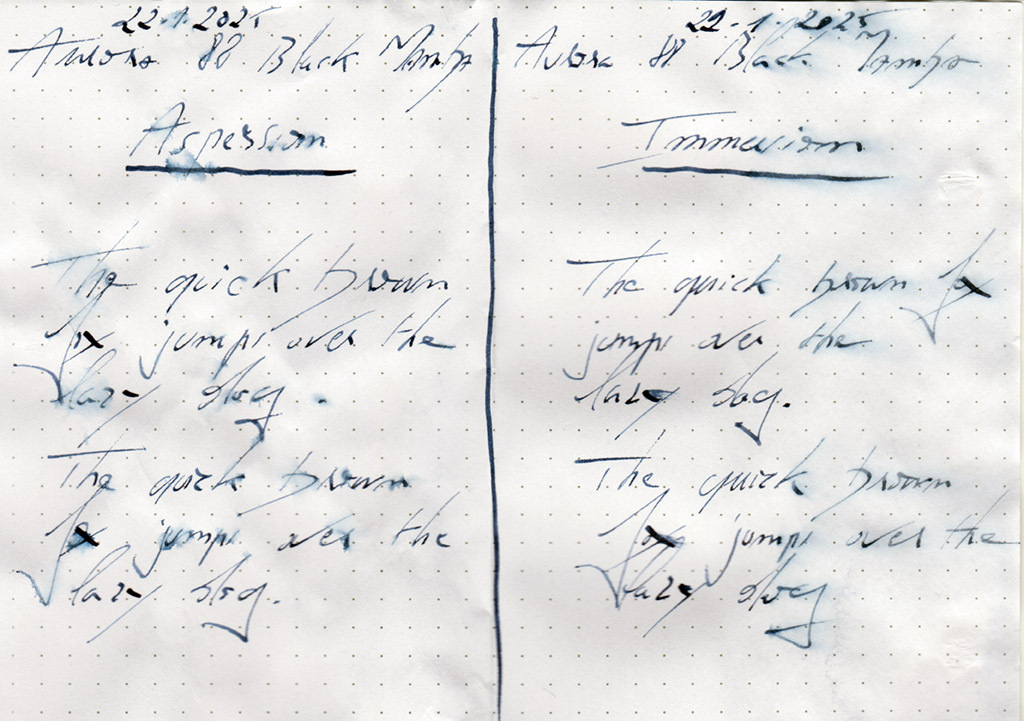 22.1.2025
Aurora 88 Black Mamba
Aspersion
The quick brown
fox jumps over the
lazy dog.
The quick brown
fox jumps over the
lazy dog.
22.1.2025
Aurora 88 Black Mamba
Immersion
The quick brown fox
jumps over the
lazy dog.
The quick brown
fox jumps over the
lazy dog